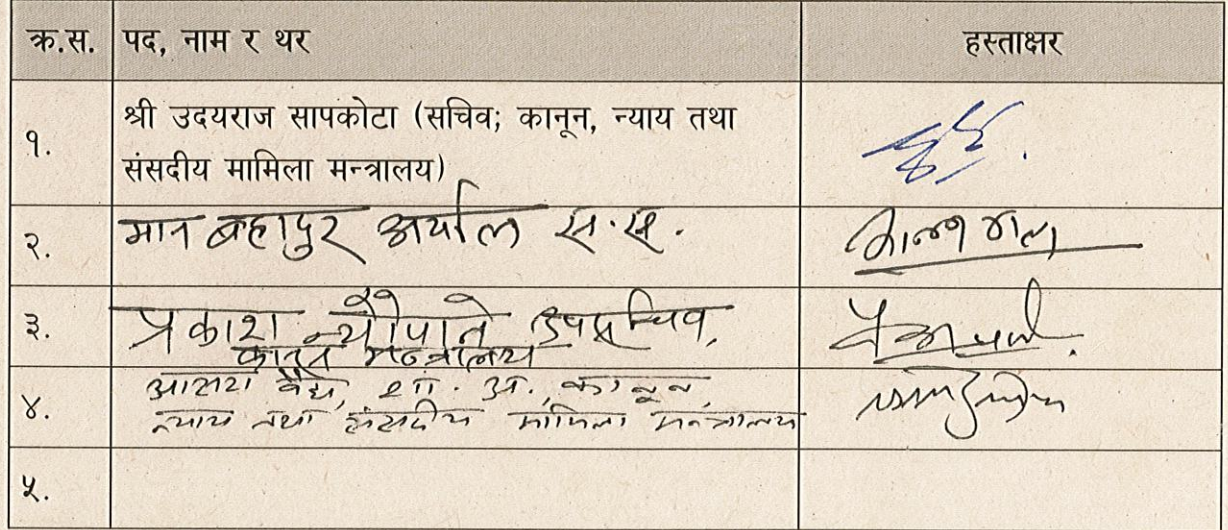 क्र.स. पद, नाम र थर हस्ताक्षर
१. श्री उदयराज सापकोटा (सचिव; कानून, न्याय तथा
संसदीय मामिला मन्त्रालय)
२. मान बहादुर अर्याल स.स.
३. प्रकाश न्यौपाने उपसचिव,
कानून मन्त्रालय
४. वैद्य, शा. अ., कानून,
न्याय तथा संसदीय मामिला मन्त्रालय
५.